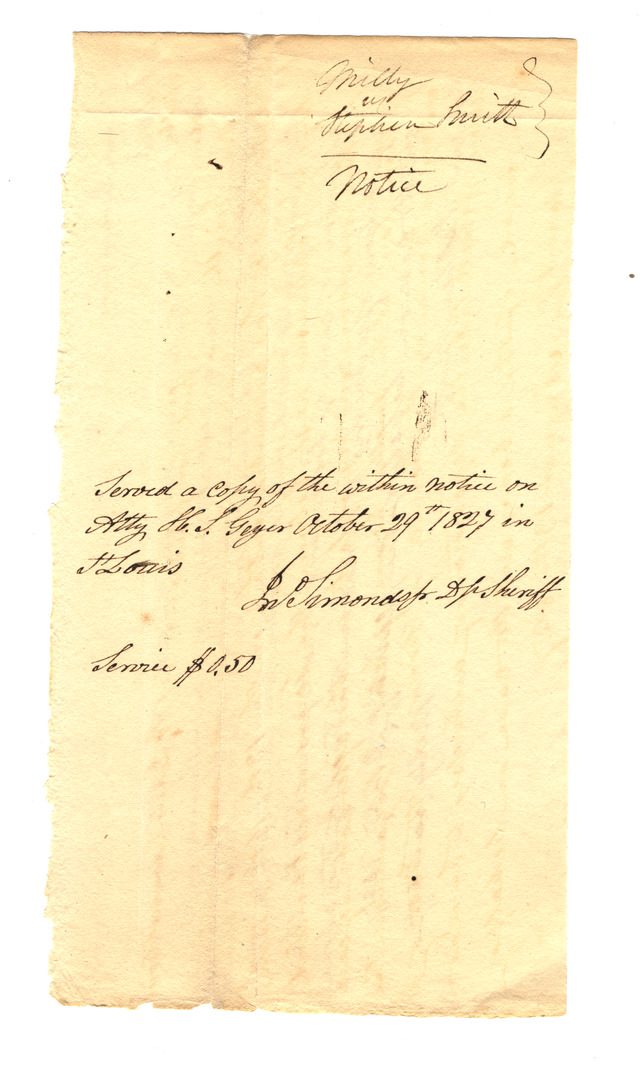 Milly
vs
Stephen Smith
Notice
Served a copy of the within notice on
Atty H. S. Geyer October 29th 1827 in
St Louis
Jno Simonds jr. Dp Sheriff
Service $0.50